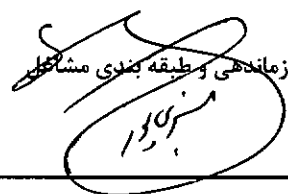 زماندهی و طبقه بندی مشاغل